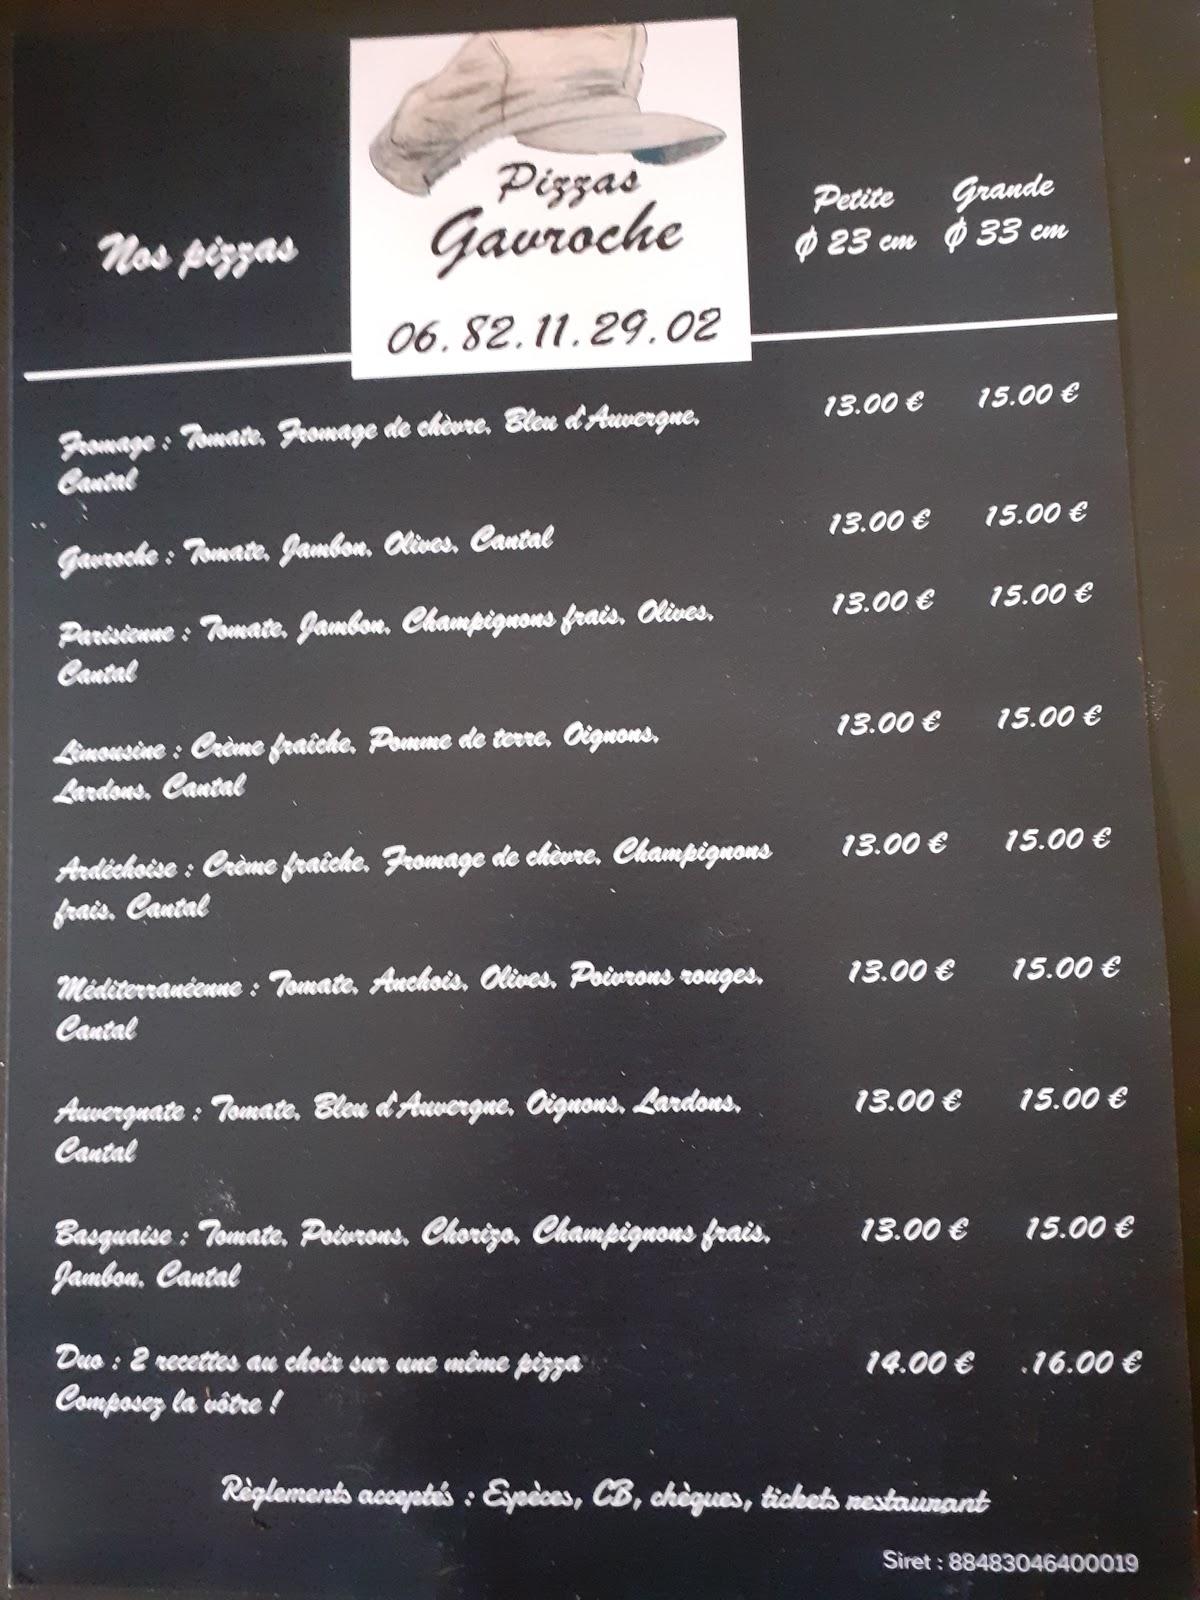 Pizzas
Gavroche
06.82.11.29.02
Nos pizzas
Petite Grande
ϕ 23 cm ϕ 33 cm
Fromage : Tomate, Fromage de chèvre, Bleu d'Auvergne, 13.00 € 15.00 €
Cantal
Gavroche : Tomate, Jambon, Olives, Cantal 13.00 € 15.00 €
Parisienne : Tomate, Jambon, Champignons frais, Olives, 13.00 € 15.00 €
Cantal
Limousine : Crème fraîche, Pomme de terre, Oignons, 13.00 € 15.00 €
Lardons, Cantal
Ardéchoise : Crème fraîche, Fromage de chèvre, Champignons 13.00 € 15.00 €
frais, Cantal
Méditerranéenne : Tomate, Anchois, Olives, Poivrons rouges, 13.00 € 15.00 €
Cantal
Auvergnate : Tomate, Bleu d'Auvergne, Oignons, Lardons, 13.00 € 15.00 €
Cantal
Basquaise : Tomate, Poivrons, Chorizo, Champignons frais, 13.00 € 15.00 €
Jambon, Cantal
Duo : 2 recettes au choix sur une même pizza 14.00 € 16.00 €
Composez la vôtre !
Règlements acceptés : Espèces, CB, chèques, tickets restaurant
Siret : 88483046400019